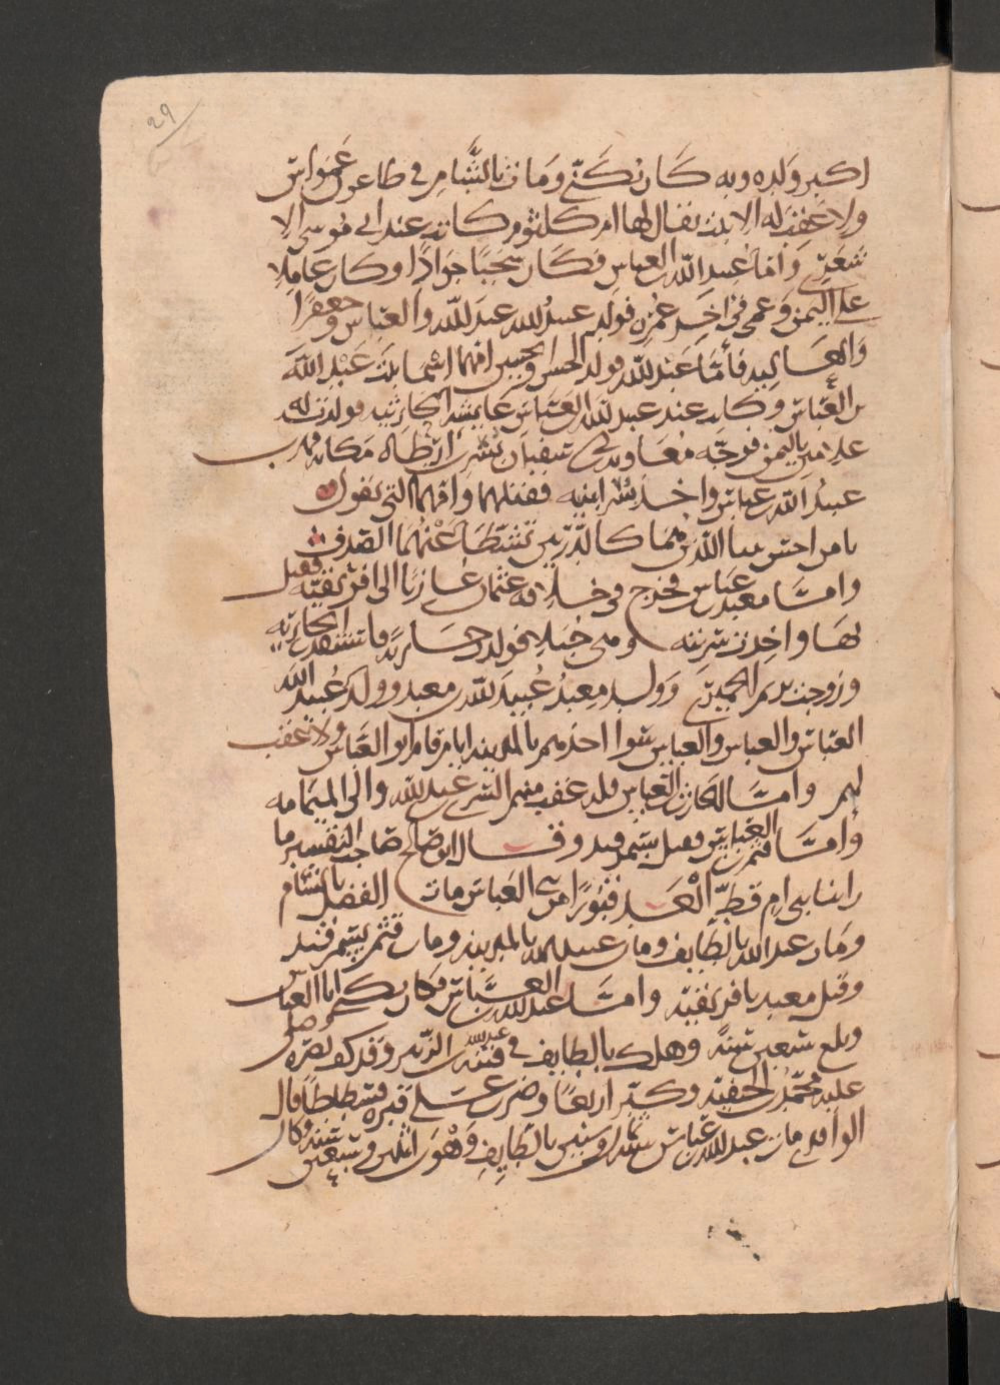 29
اكبر ولده وبه كان يكنى ومات بالشام في طاعون عمواس
ولا عقب له الا بنت يقال لها ام كلثوم وكانت عند ابي موسى الا
شعري واما عبيد الله بن العباس فكان سخيا جوادا وكان عاملا
على اليمن وعمي في اخر عمره فولد عبيد الله عبد الله والعباس وجعفرا
والعالية فأما عبد الله فولد الحسن والحسين امهما اسما بنت عبد الله
بن العباس وكانت عند عبيد الله بن العباس عايشة الحارثية فولدت له
غلامين باليمن فوجه معاوية بن ابي سفيان بسر بن ارطاة مكانه فهرب
عبيد الله بن عباس واخذ بسر ابنيه فقتلهما وامهما التي تقول
يا من احس بنيا اللذين هما كالدرتين تشظا عنهما الصدف
واما معبد بن عباس فخرج في خلافة عثمان غازيا الى افريقية فقتل
بها واخذت سريته وهي حبلى
وزوجت يريم الحميري وولد معبد عبيد الله بن معبد وولد عبيد الله
العباس والعباس والعباس احدهم بالمدينة ايام قام ابو العباس ولا عقب
لهم واما الحارث بن العباس فله عقب منهم السري بن عبد الله والي اليمامة
واما قثم بن العباس فقتل بسمرقند وقال ابو صالح صاحب التفسير ما
راينا بني ام قط ابعد قبورا من بني العباس مات الفضل بالشام
ومات عبد الله بالطايف ومات عبيد الله بالمدينة ومات قثم بسمرقند
وقتل معبد بافريقية واما عبد الله بن العباس فكان يكنى ابا العباس
وبلغ سبعين سنة وهلك بالطايف في فتنة عبد الله بن الزبير وقد كف بصره وصلى
عليه محمد بن الحنفية وكبر اربعا وضرب على قبره فسطاطا قال
الواقدي مات عبد الله بن عباس سنة ثمان وستين بالطايف وهو ابن اثنين وسبعين سنة وكان